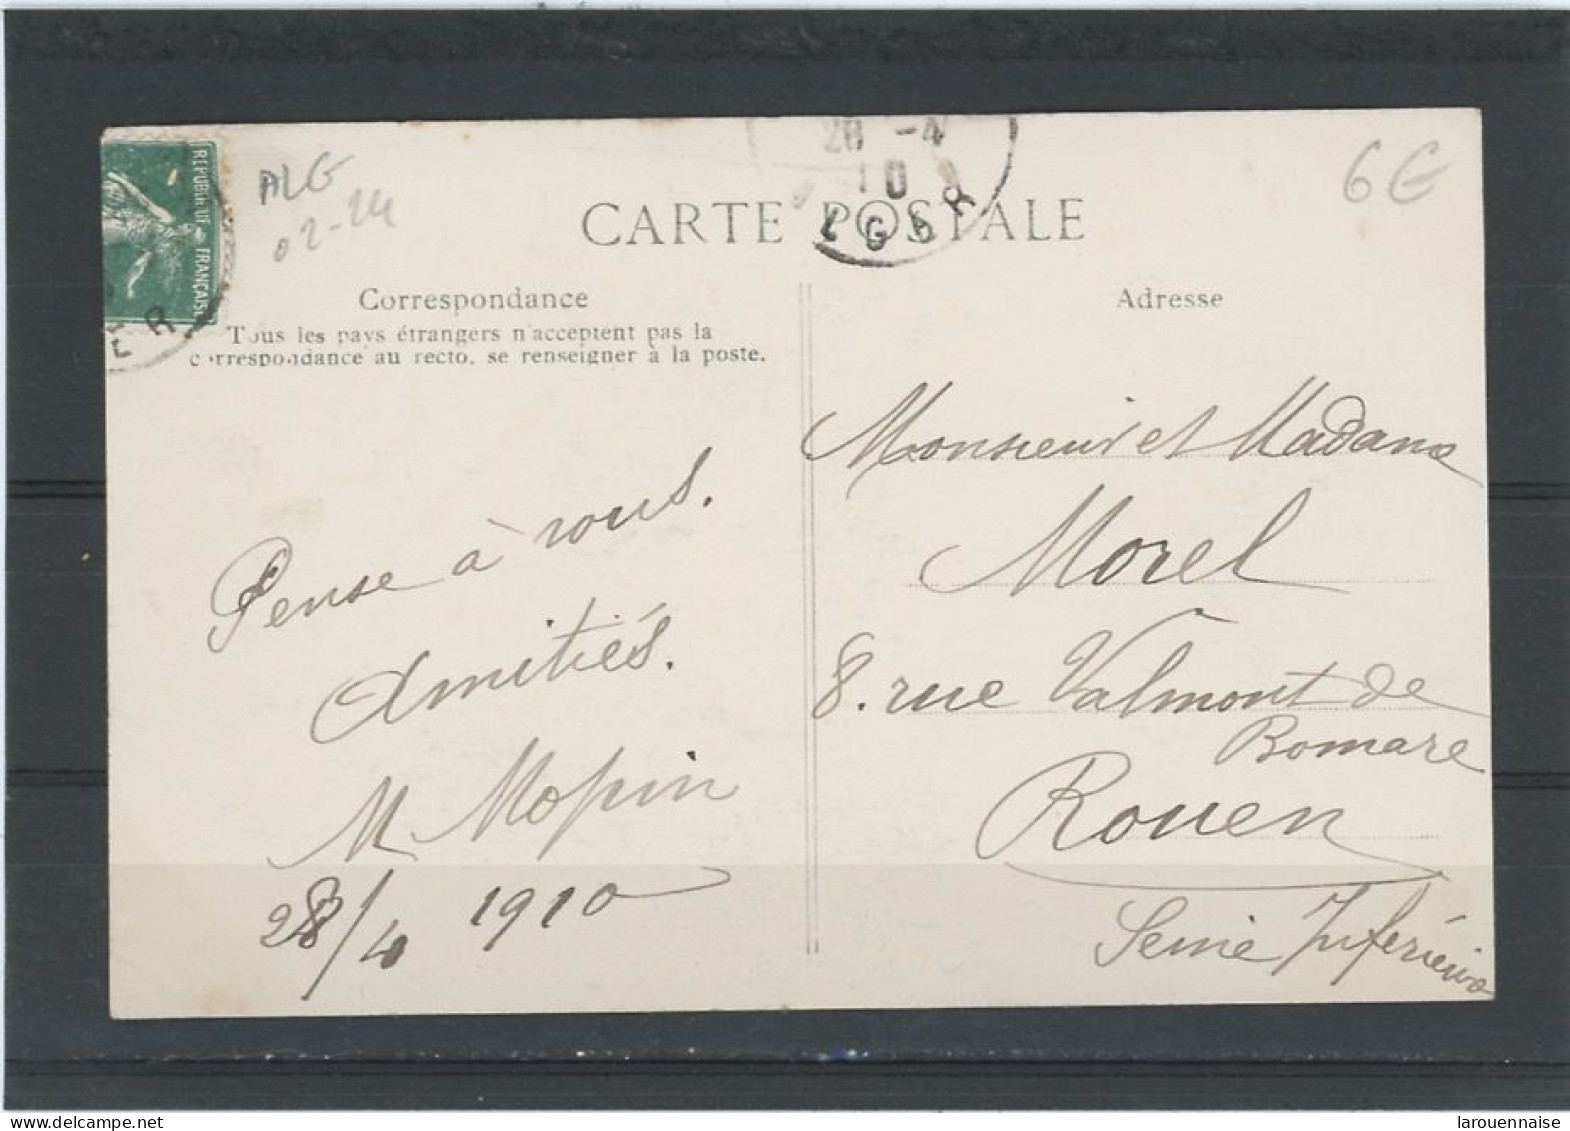 REPUBLIQUE FRANÇAISE
ALG
02-24
28 -4
10
6€
CARTE POSTALE
Correspondance
Tous les pays étrangers n'acceptent pas la
correspondance au recto, se renseigner à la poste.
Adresse
Pense à vous.
Amitiés.
M Mopin
28/4 1910
Monsieur et Madame
Morel
8. rue Valmont de
Bomare
Rouen
Seine Inférieure
larouennaise